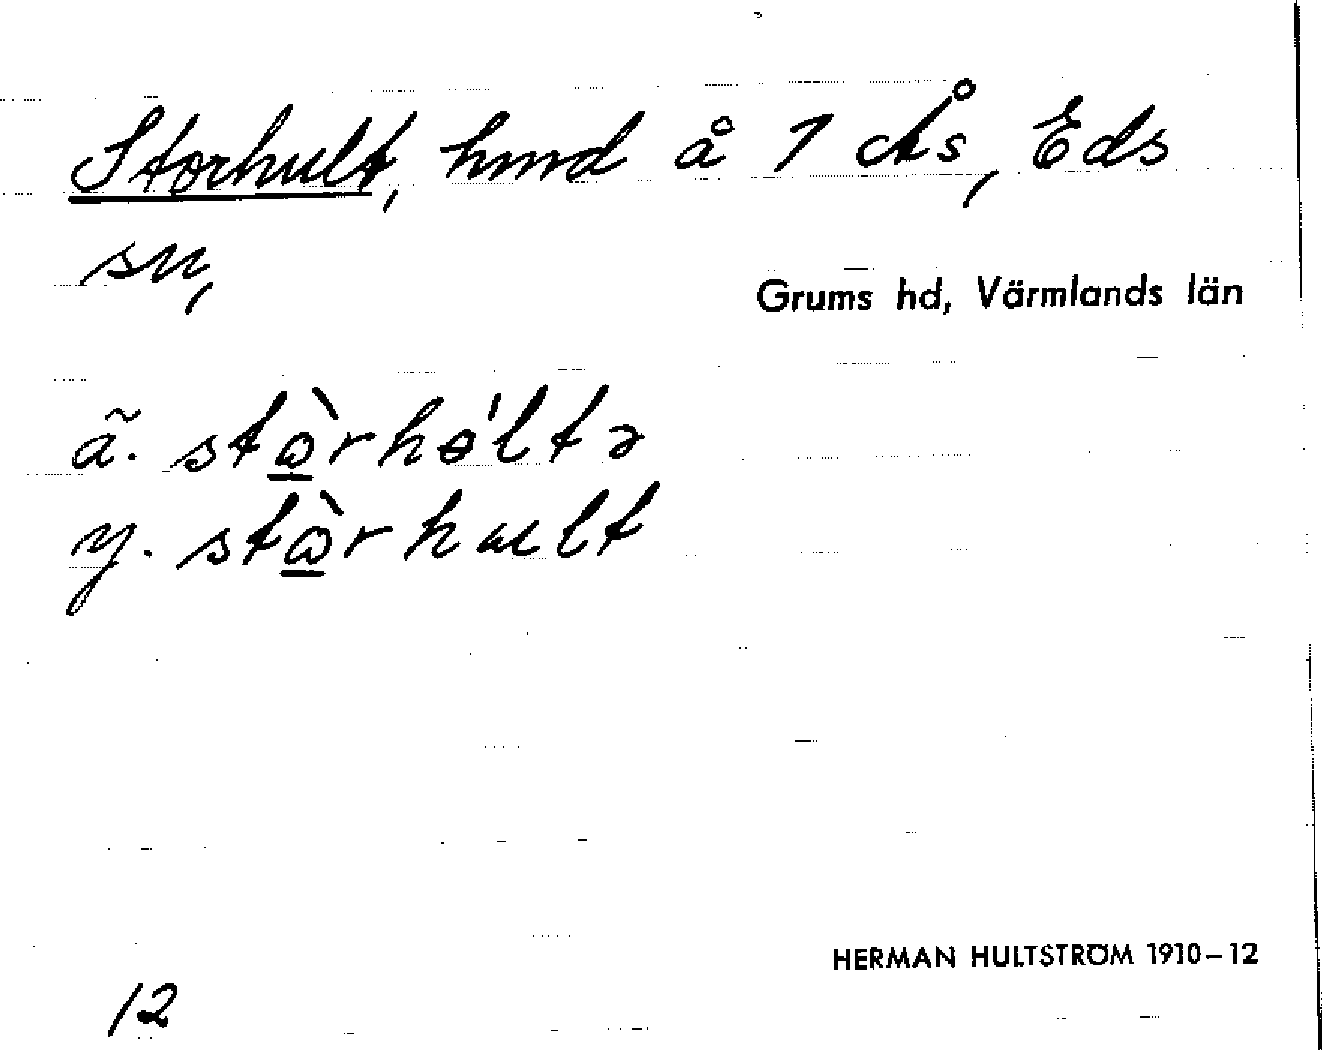 Storhult, hmd å 1 Ås, Eds
sn,
Grums hd, Värmlands län
ã. stὼ̲rhɵ́ltə
y. stὼ̲rhult
HERMAN HULTSTRÖM 1910–12
12